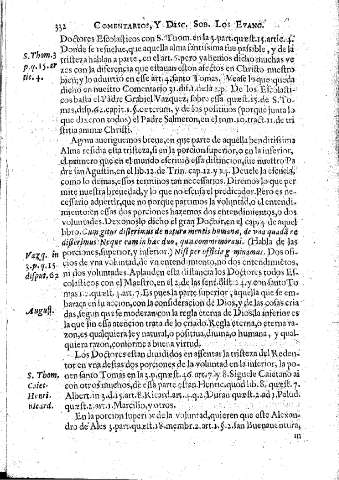 332 COMENTARIOS, Y DISC. SOB. LOS EVANG.
Doctores Escolasticos con S. Thom. en la 3. part. quæst. 15. artic. 4.
Donde se resuelue, que aquella alma santissima fue passible, y de la
tristeza hablan a parte, en el art. 5. pero ya hemos dicho muchas ve
zes con la diferencia que estauan estos afectos en Christo nuestro
bien; y lo aduirtio en esse art. 4. santo Tomas. Vease lo que queda
dicho en nuestro Comentario 31. De los Escolasti-
cos basta el Padre Grabiel Vazquez, sobre essa quæst. 15. de S. To-
mas, disp. 62. capit. 1. & ceteram, y de los positiuos (porque junta lo
que dizen todos) el Padre Salmeron, en el tom. 10. tract. 11. de tri
stitia animæ Christi.
Agora aueriguemos breue, en que parte de aquella benditissima
Alma residia esta tristeza, si en la porcion superior, o en la inferior,
el primero que en el mundo formó essa distincion, fue nuestro Pa
dre san Agustin, en el lib. 12. de Trin. cap. 12. y 14. Deuele la ciencia,
como lo demas, essos terminos tan necessarios. Diremos lo que per
mite nuestra breuedad, y lo que no escusa el predicador. Pero es ne-
cessario aduertir, que no porque partimos la voluntad, o el entendi-
miento en essas dos porciones hazemos dos entendimientos, o dos
voluntades. Dexonoslo dicho el gran Doctor en el cap. 4. de aquel
libro. Cum igitur disserimus de natura mentis humanæ, de vna quadã re
disserimus: Neque eam in hæc duo, quæ commemoraui. (Habla de las
porciones, superior, y inferior.) Nisi per officia geminamus. Dos ofi-
cios de vna voluntad, de vn entendimiento, no dos entendimientos,
ni dos voluntades. Aplauden esta distancia los Doctores todos Es-
colasticos con el Maestro, en el 2. de las sent. dist. 24. y con santo To
mas 1. 2. quæst. art. 7. Ispues la parte superior, aquella que se em-
baraça en la accion, con la consideracion de Dios, y de las cosas cria
das, segun que se moderan con la regla eterna de Dios, la inferior es
la que sin essa atencion trata de lo criado. Regla eterna, o eterna ra-
zon, es qualquiera ley natural, o positiua, diuina, o humana, y qual-
quiera razon, conforme a buena virtud.
Los Doctores estan diuididos en assentar la tristeza del Reden-
tor en vna destas dos porciones de la voluntad en la inferior, la po
nen santo Tomas en la 3. p. quæst. 46. art. 7. y 8. Siguele Caietano aí
con otros muchos, de essa parte estan Henric. quod lib. 8. quæst. 7.
Albert. in 3. d. 15. art. 8. Ricard. art. 4. q. 2. Durau quæst. 2. ad 3. Palud.
quæst. 2. art. 1. Marcilio, y otros.
En la porcion superior de la voluntad, quieren que este Alexan-
dro de Ales 3. part. quæst. 18. membr. 2. art. 1. §. 2. san Buenauentura,
in
S. Thom. 3
p. q. 15. ar
tic. 4.
Vazq. in
3. p. q. 15
disput. 62
August.
S. Thom.
Caiet-
Henri-
Ricard.